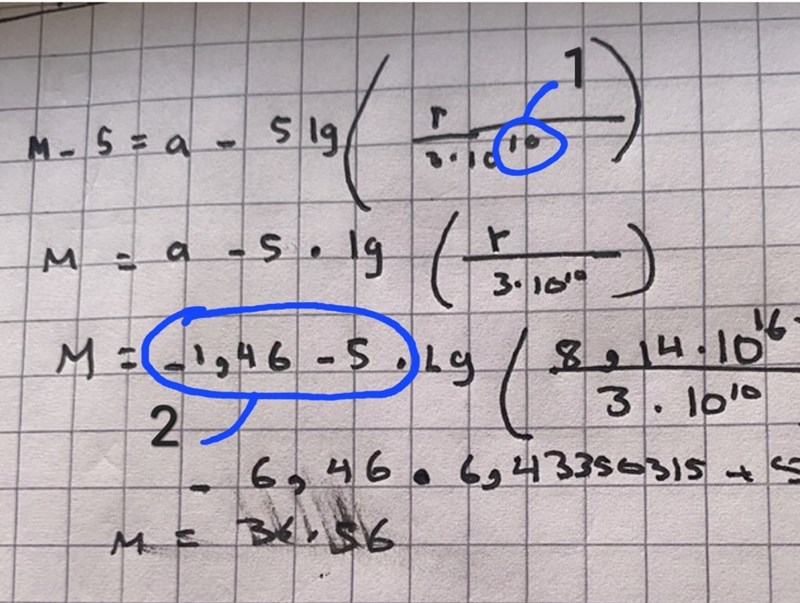 1
M - 5 = a - 5 lg ( r / 3·10^10 )
M = a - 5 · lg ( r / 3·10^10 )
M = -1,46 - 5 · Lg ( 8,14·10^16 / 3·10^10
2
- 6,46 · 6,43350315 + 5
M = 36,56